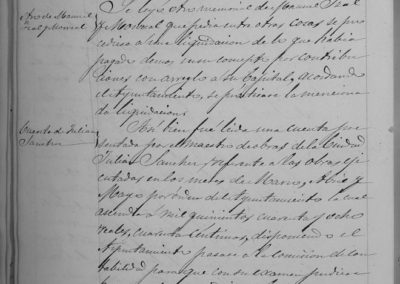 Otro de Manuel
Leal y Monreal
Se leyó otro memorial de Manuel Leal
y Monreal que pedia entre otras cosas se pro
cediese a una liquidacion de lo que habia
pagado demas en su concepto por contribu
ciones con arreglo a su Capital, acordando
el Ayuntamiento, se practicara la menciona
da liquidacion.
Cuenta de Julian
Sanchez
Tambien fué leida una cuenta pre
sentada por el maestro de obras de la Ciudad
Julian Sanchez, referente a las obras eje
cutadas en los meses de Marzo, Abril y
Mayo por orden del Ayuntamiento la cual
asciende a mil quinientos cuarenta y ocho
reales, cuarenta centimos, disponiendo el
Ayuntamiento pasase a la comision de con
tabilidad para que con su examen pudiese